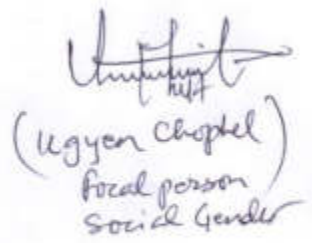 (Ugyen Chophel)
focal person
Social Gender